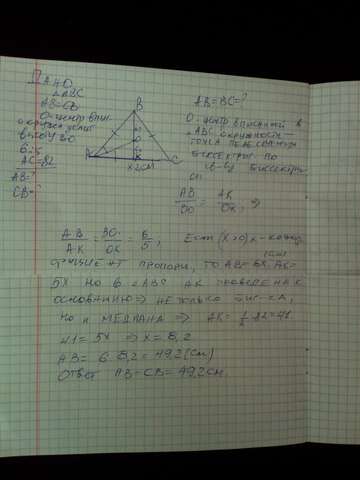 Дано
△ABC
AB=CB
O-центр впис.
высоту BO
6:5
AC=82
AB-?
CB=?
B
A
C
K
x см
AB=BC=?
O-центр вписанной в
△ABC окружность—
точка пересечения
биссектрис по
св-ву биссектри-
сы
AB/BO = AK/OK, ⇒
AB/AK = BO/OK = 6/5,
Если (x>0) x - коэф-
фициент пропорц, то AB=6x, AK=
5x Но в △ABC
основанию ⇒ не только
но и медиана ⇒ AK=½·82=41
41=5x ⇒ x=8,2
AB=6·8,2=49,2(см)
Ответ AB=CB=49,2см.